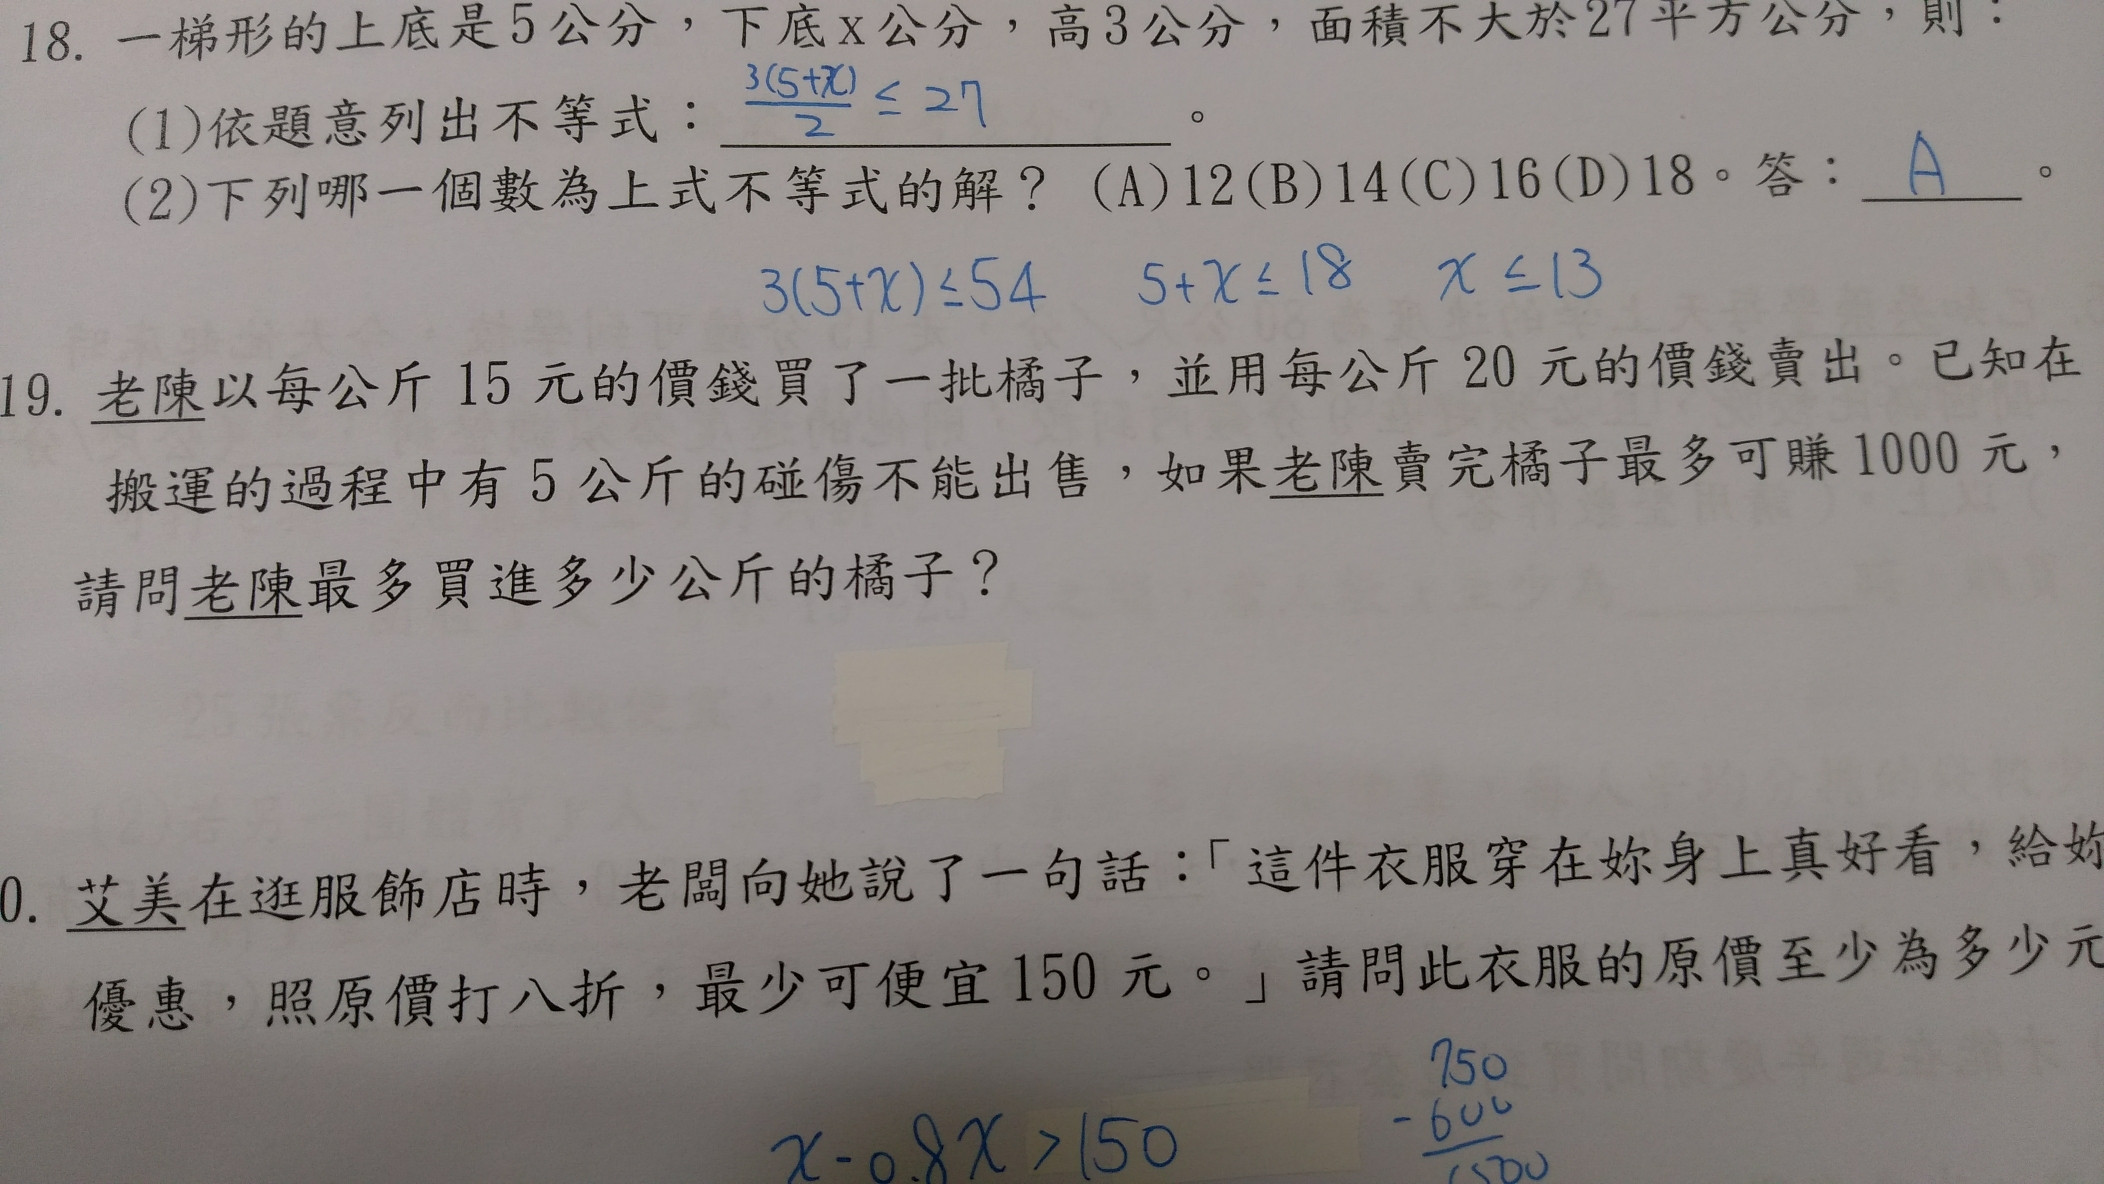 18. 一梯形的上底是5公分，下底x公分，高3公分，面積不大於27平方公分，則：
(1)依題意列出不等式： 3(5+x)/2 ≤ 27 。
(2)下列哪一個數為上式不等式的解？ (A)12(B)14(C)16(D)18。答： A 。
3(5+x)≤54 5+x≤18 x≤13
19. 老陳以每公斤 15 元的價錢買了一批橘子，並用每公斤 20 元的價錢賣出。已知在
搬運的過程中有 5 公斤的碰傷不能出售，如果老陳賣完橘子最多可賺 1000 元，
請問老陳最多買進多少公斤的橘子？
0. 艾美在逛服飾店時，老闆向她說了一句話：「這件衣服穿在妳身上真好看，給妳
優惠，照原價打八折，最少可便宜 150 元。」請問此衣服的原價至少為多少元
750
-600
x-0.8x>150